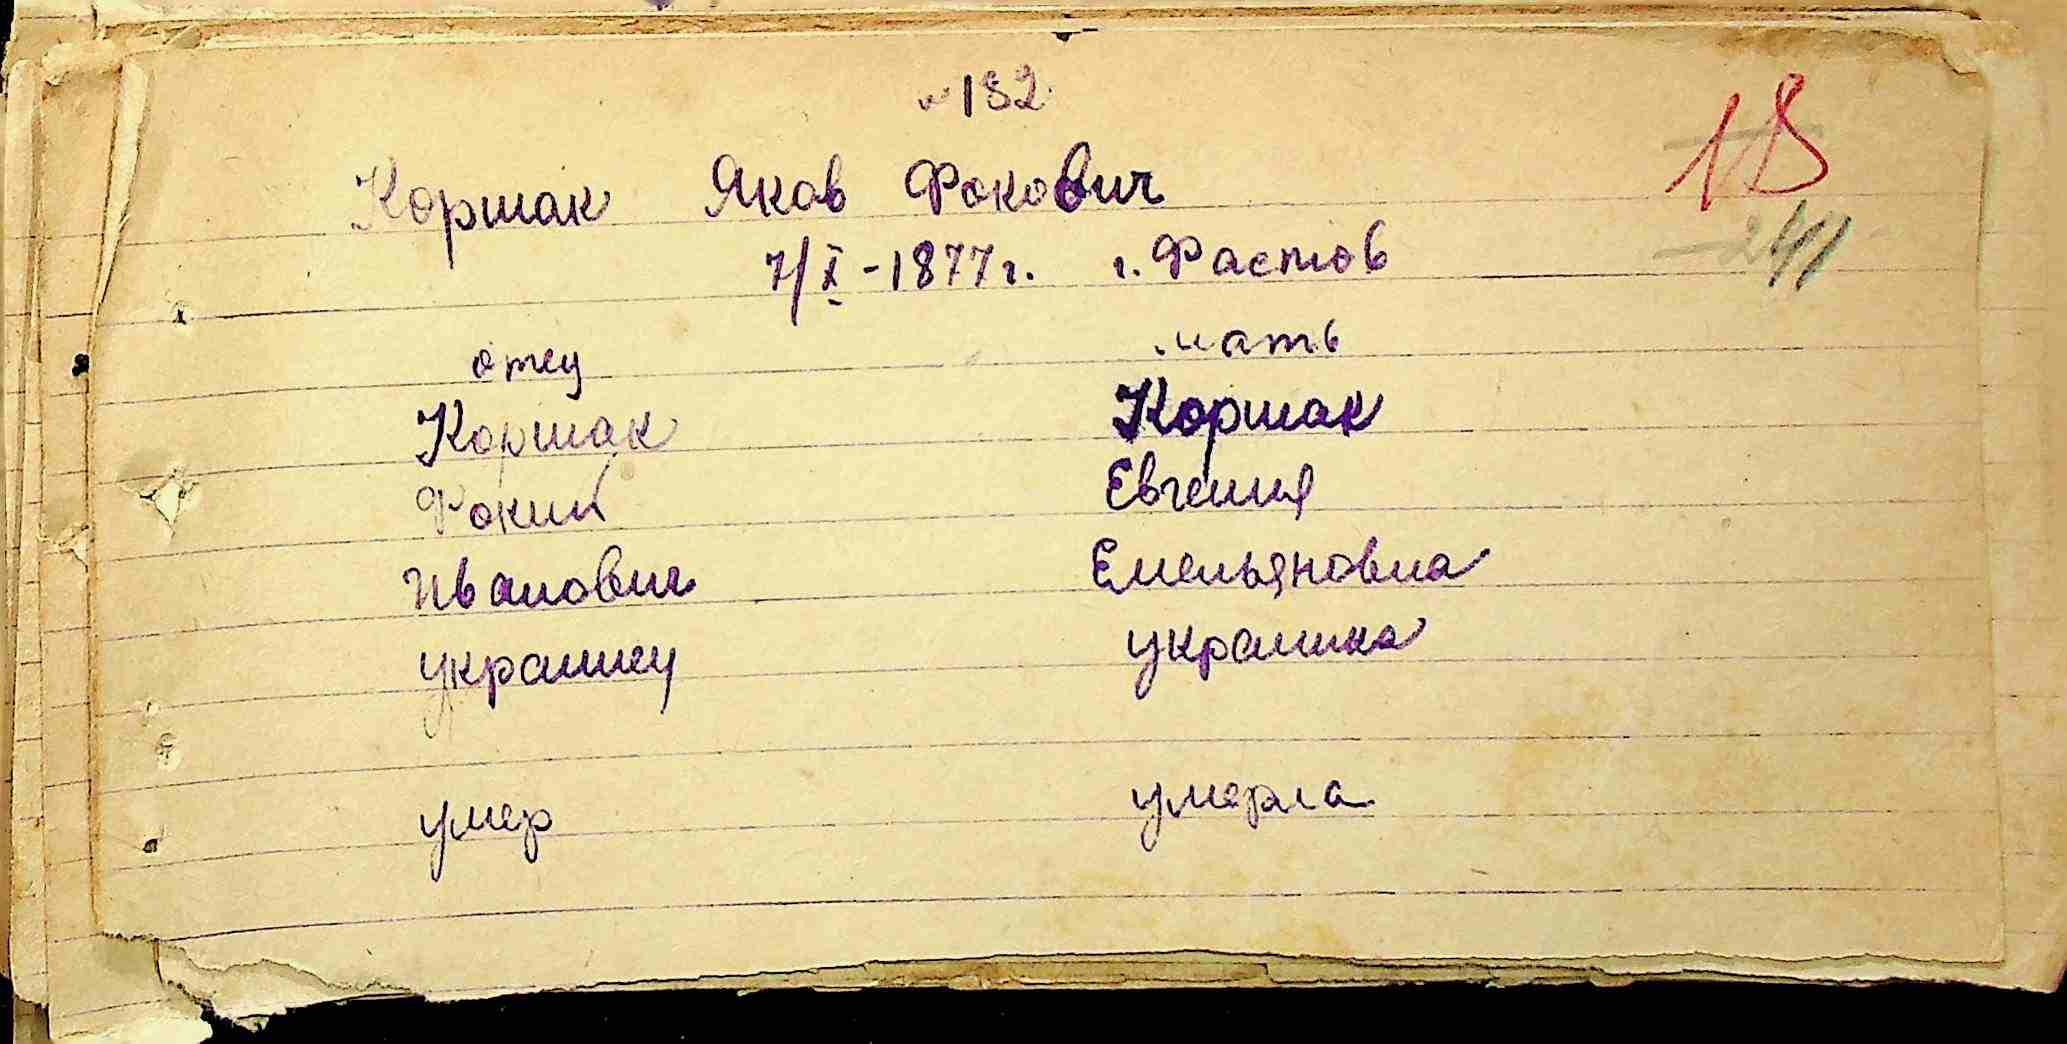 №132
18
Коршак Яков Фокович
7/X-1877г. г. Фастов
241
отец мать
Коршак Коршак
Фокий Евгения
Иванович Емельяновна
украинец украинка
умер умерла